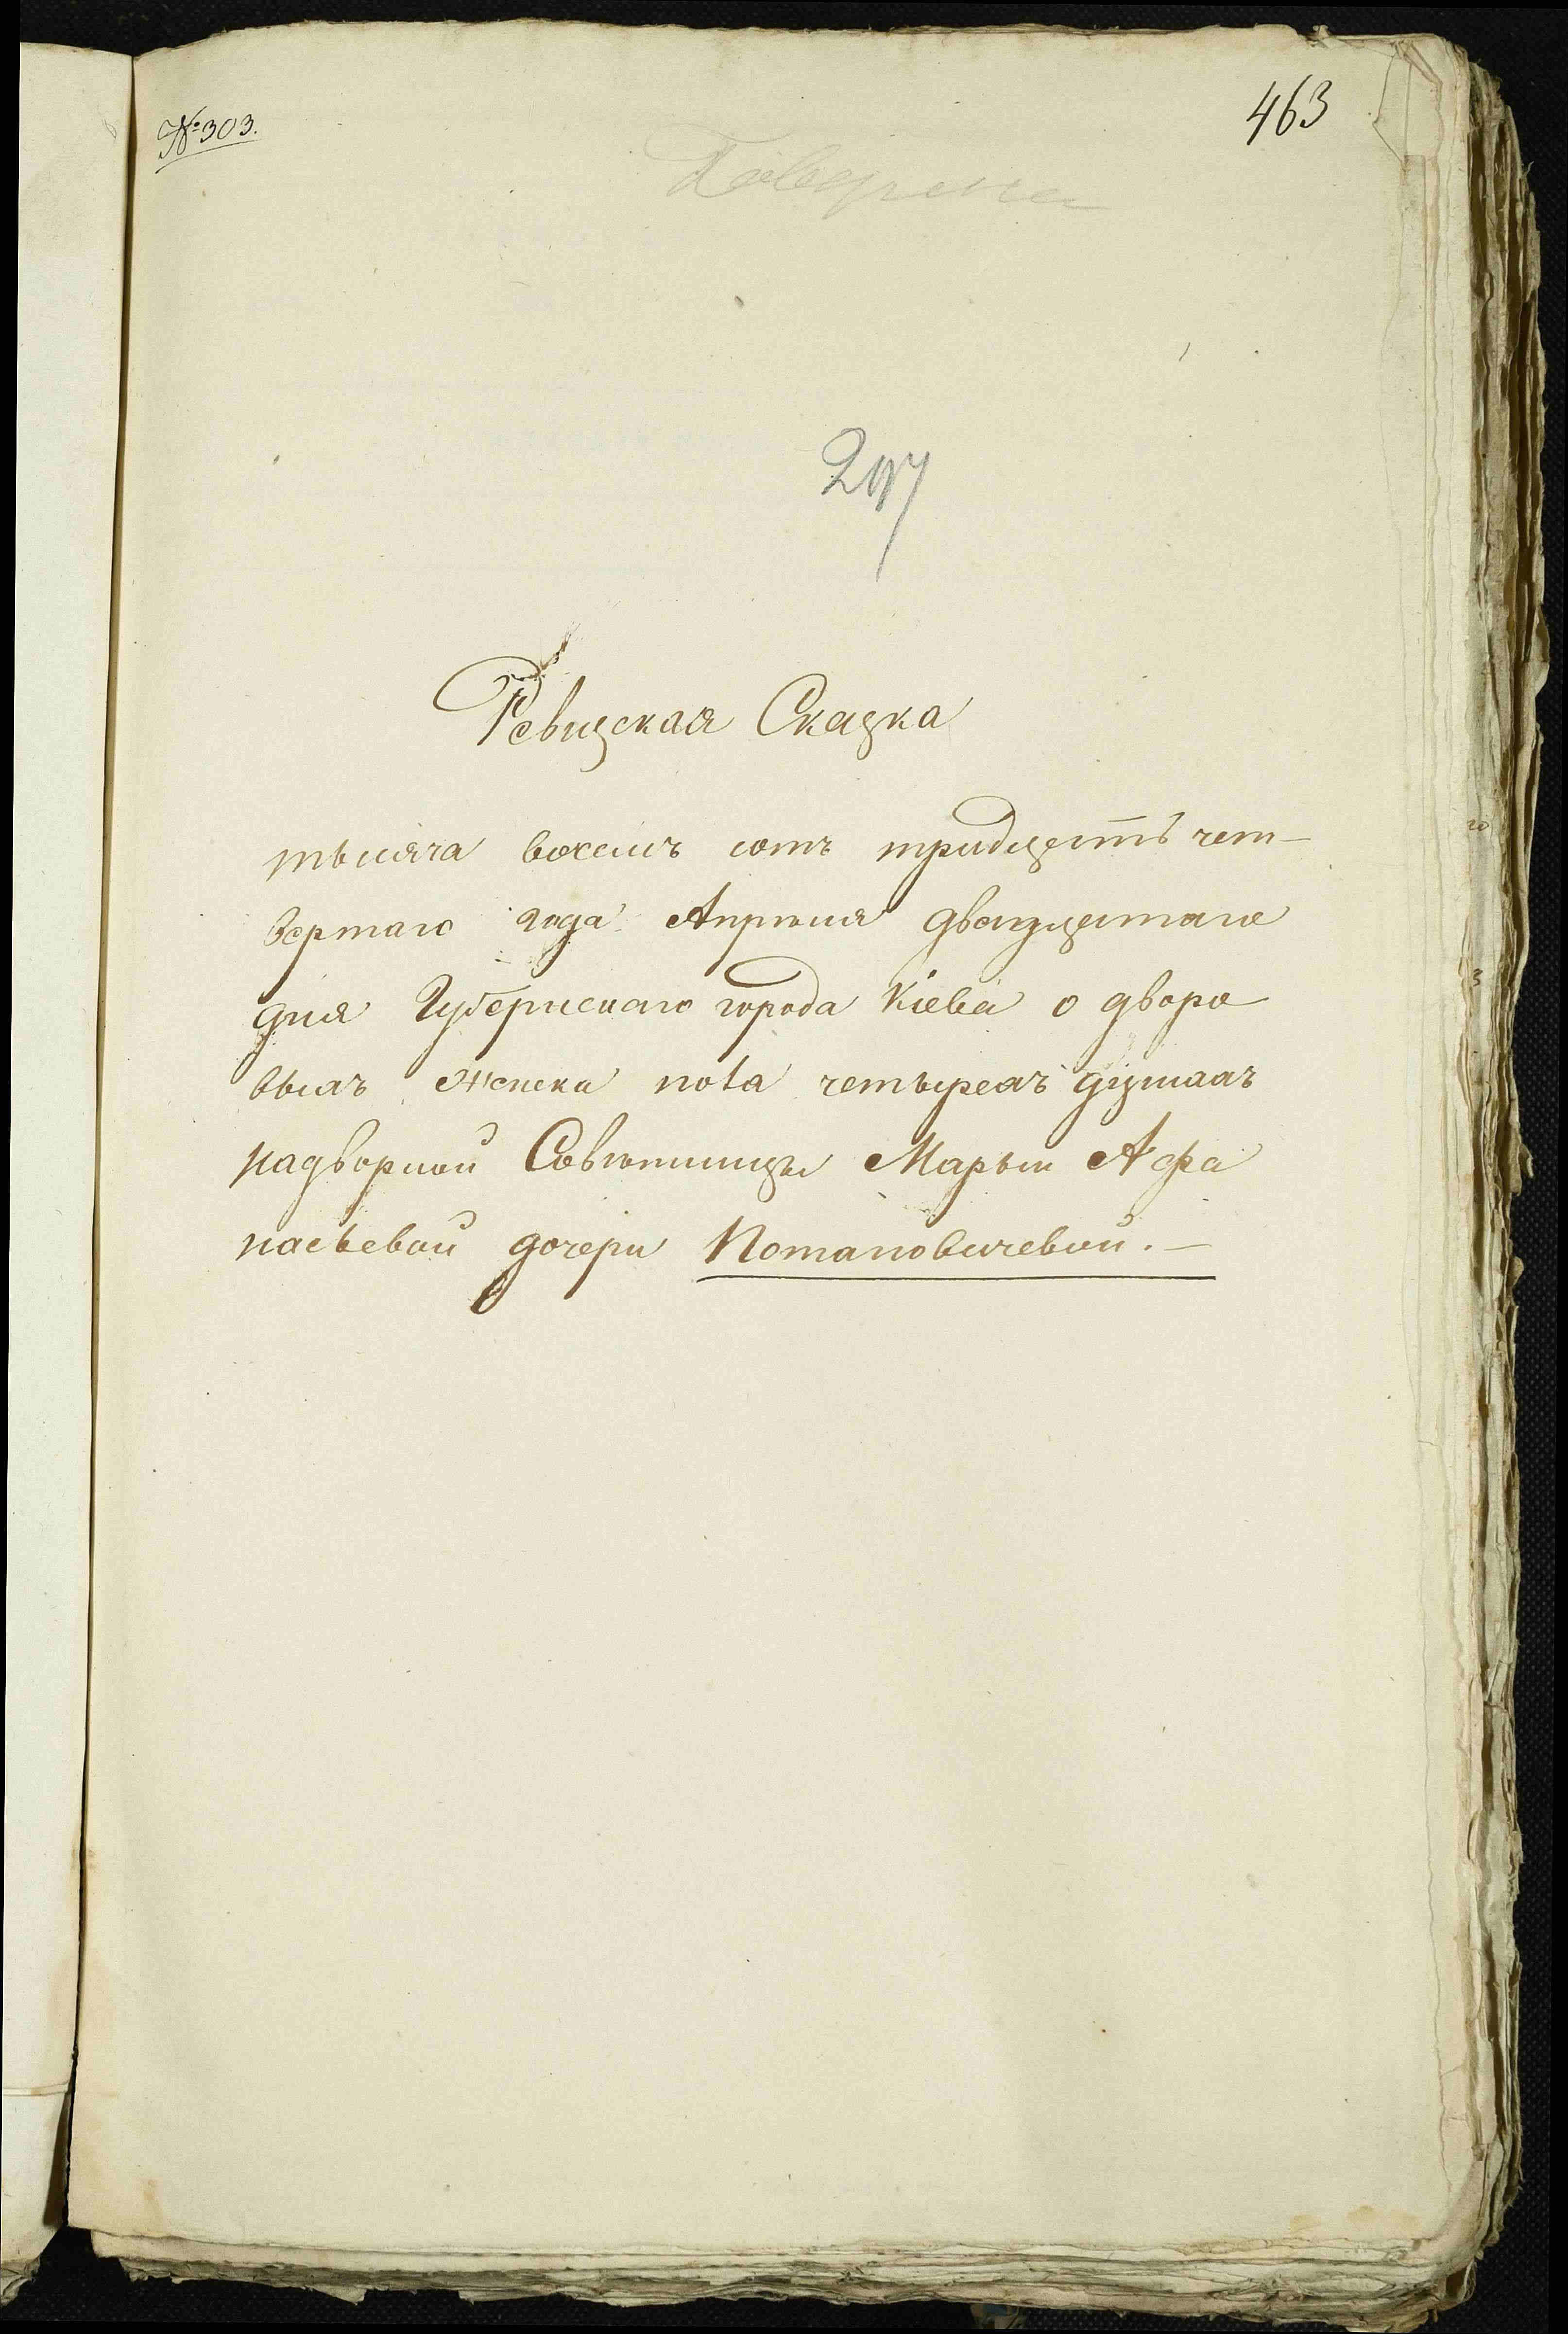 № 303.
463
Поверена
297
Ревизская Сказка
тысяча восемъ сотъ тридцать чет-
вертаго года Апрѣля двадцатаго
дня Губернскаго города Кіева о дворо
выхъ женска пола четырехъ душахъ
надворной Совѣтницы Марьи Афа
насьевой дочери Потаповичевой.-